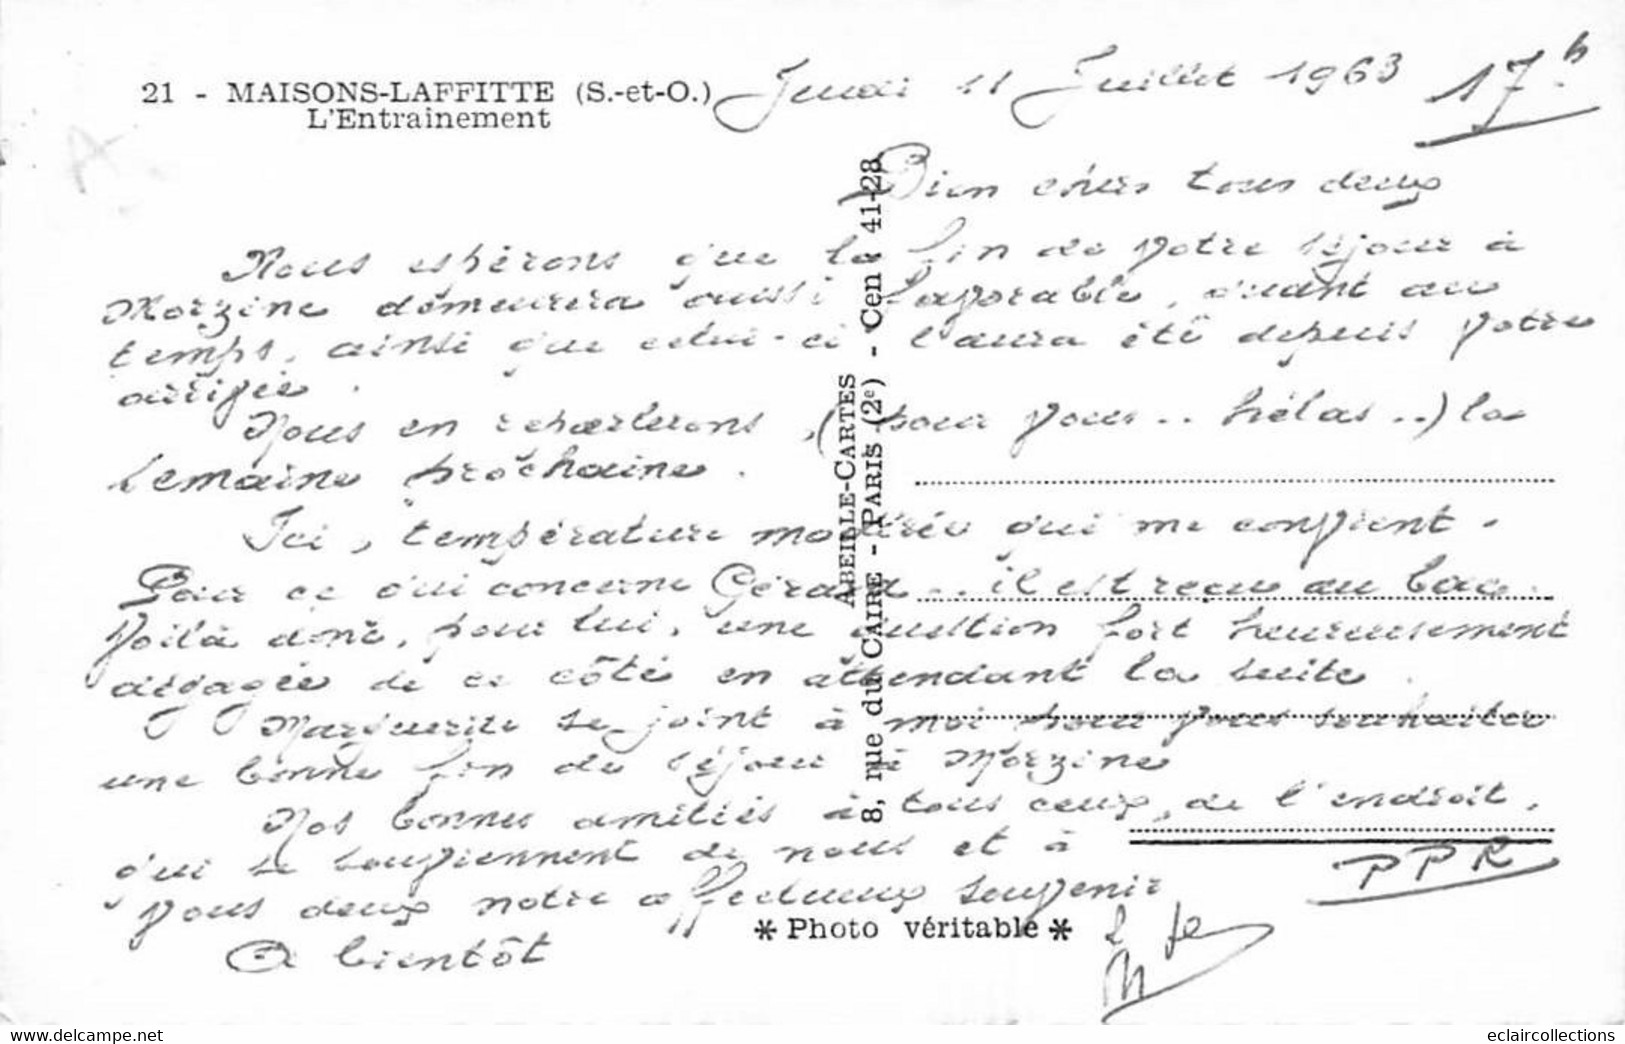 21 - MAISONS-LAFFITTE (S.-et-O.)
L'Entrainement
Jeudi 11 Juillet 1963 17h
Bien chers tous deux
Nous espérons que la fin de votre séjour à
Morzine demeurera aussi favorable, quant au
temps, ainsi que celui-ci l'aura été depuis votre
arrivée.
Nous en reparlerons, (pour vous.. hélas..) la
semaine prochaine.
Ici, température modérée qui me convient.
Pour ce qui concerne Gérard.. il est reçu au bac.
Voilà donc, pour lui, une question fort heureusement
dégagée de ce côté en attendant la suite.
Marguerite se joint à moi pour vous souhaiter
une bonne fin de séjour à Morzine
Nos bonnes amitiés à tous ceux, de l'endroit,
qui se souviennent de nous et à
vous deux notre affectueux souvenir
A bientôt
PPR
ABEILLE-CARTES
8, rue du CAIRE - PARIS (2e) - Cen 41-23
* Photo véritable *
eclaircollections